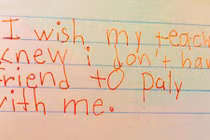 I wish my teach
knew i don't hav
friend to paly
with me.